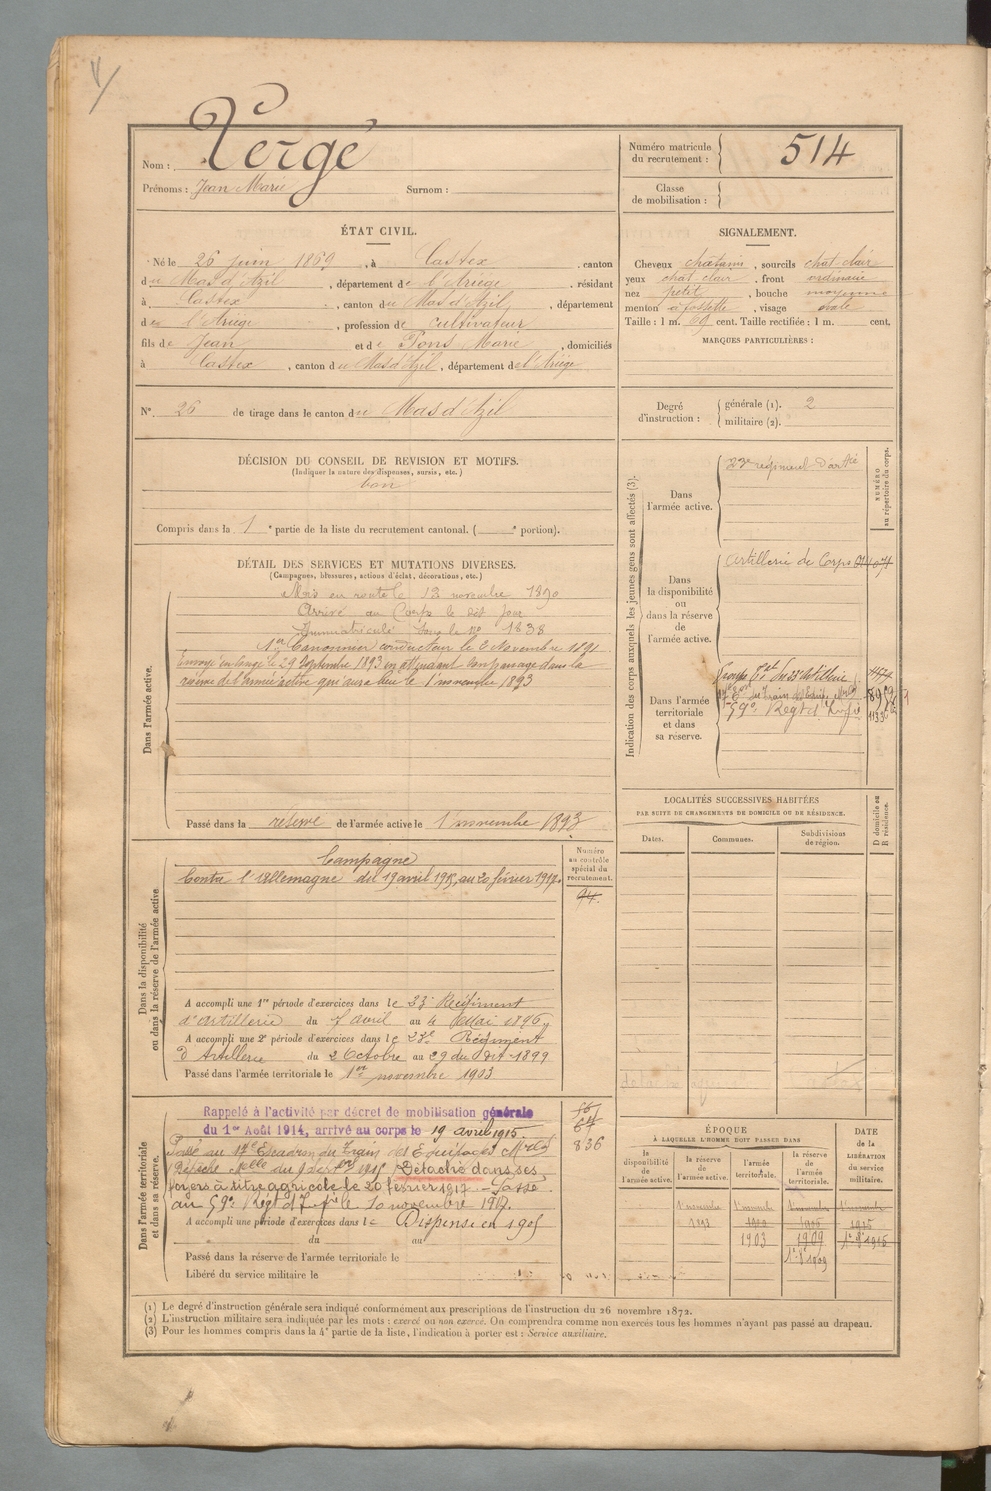 V/
Nom : Vergé
Prénoms : Jean Marie Surnom :
Numéro matricule du recrutement : 514
Classe de mobilisation :
ÉTAT CIVIL.
Né le 26 juin 1869, à Castex, canton
du Mas d'Azil, département de l'Ariège, résidant
à Castex, canton du Mas d'Azil, département
de l'Ariège, profession de cultivateur
fils de Jean et de Pons Marie, domiciliés
à Castex, canton du Mas d'Azil, département de l'Ariège
SIGNALEMENT.
Cheveux chatains, sourcils chat. clair
yeux chat. clair, front ordinaire
nez petit, bouche moyenne
menton à fossette, visage ovale
Taille : 1 m. 69 cent. Taille rectifiée : 1 m. cent.
MARQUES PARTICULIÈRES :
N° 26 de tirage dans le canton du Mas d'Azil
Degré d'instruction : générale (1). 2
militaire (2).
DÉCISION DU CONSEIL DE REVISION ET MOTIFS.
(Indiquer la nature des dispenses, sursis, etc.)
bon
Compris dans la 1e partie de la liste du recrutement cantonal. ( e portion).
DÉTAIL DES SERVICES ET MUTATIONS DIVERSES.
(Campagnes, blessures, actions d'éclat, décorations, etc.)
Dans l'armée active.
Mis en route le 12 novembre 1890
Arrivé au Corps le dit jour
Immatriculé sous le no 1838
1er Canonnier conducteur le 2 Novembre 1891
Envoyé en Congé le 29 Septembre 1893 en attendant son passage dans la
réserve de l'armée active qui aura lieu le 1er novembre 1893
Passé dans la réserve de l'armée active le 1er novembre 1893
Indication des corps auxquels les jeunes gens sont affectés (3).
NUMÉRO au répertoire du corps.
Dans l'armée active.
23e régiment d'artie
Dans la disponibilité ou dans la réserve de l'armée active.
Artillerie de Corps
Dans l'armée territoriale et dans sa réserve.
59e Régt d'Infie
LOCALITÉS SUCCESSIVES HABITÉES
PAR SUITE DE CHANGEMENTS DE DOMICILE OU DE RÉSIDENCE.
D domicile ou R résidence.
Dates.
Communes.
Subdivisions de région.
Dans la disponibilité ou dans la réserve de l'armée active
Numéro au contrôle spécial du recrutement.
94.
Campagne
Contre l'Allemagne du 19 avril 1915, au 20 février 1917.
A accompli une 1re période d'exercices dans le 23e Régiment
d'Artillerie du 7 avril au 4 Mai 1896
A accompli une 2e période d'exercices dans le 23e Régiment
d'Artillerie du 2 Octobre au 29 du dit 1899
Passé dans l'armée territoriale le 1er novembre 1903
Dans l'armée territoriale et dans sa réserve.
Rappelé à l'activité par décret de mobilisation générale
du 1er Août 1914, arrivé au corps le 19 avril 1915
Passé au 17e Escadron du Train des Equipages
836
Détaché dans ses
foyers à titre agricole le 20 février 1917 - Passé
au 59e Régt d'Infie le 10 novembre 1917.
A accompli une période d'exercices dans le Dispensé en 1905
du au
Passé dans la réserve de l'armée territoriale le
Libéré du service militaire le
ÉPOQUE
À LAQUELLE L'HOMME DOIT PASSER DANS
la disponibilité de l'armée active.
la réserve de l'armée active.
l'armée territoriale.
la réserve de l'armée territoriale.
DATE de la LIBÉRATION du service militaire.
1er novembre 1er novembre 1er novembre 1er novembre
1893 1900 1906 1915
1903 1909
(1) Le degré d'instruction générale sera indiqué conformément aux prescriptions de l'instruction du 26 novembre 1872.
(2) L'instruction militaire sera indiquée par les mots : exercé ou non exercé. On comprendra comme non exercés tous les hommes n'ayant pas passé au drapeau.
(3) Pour les hommes compris dans la 4e partie de la liste, l'indication à porter est : Service auxiliaire.